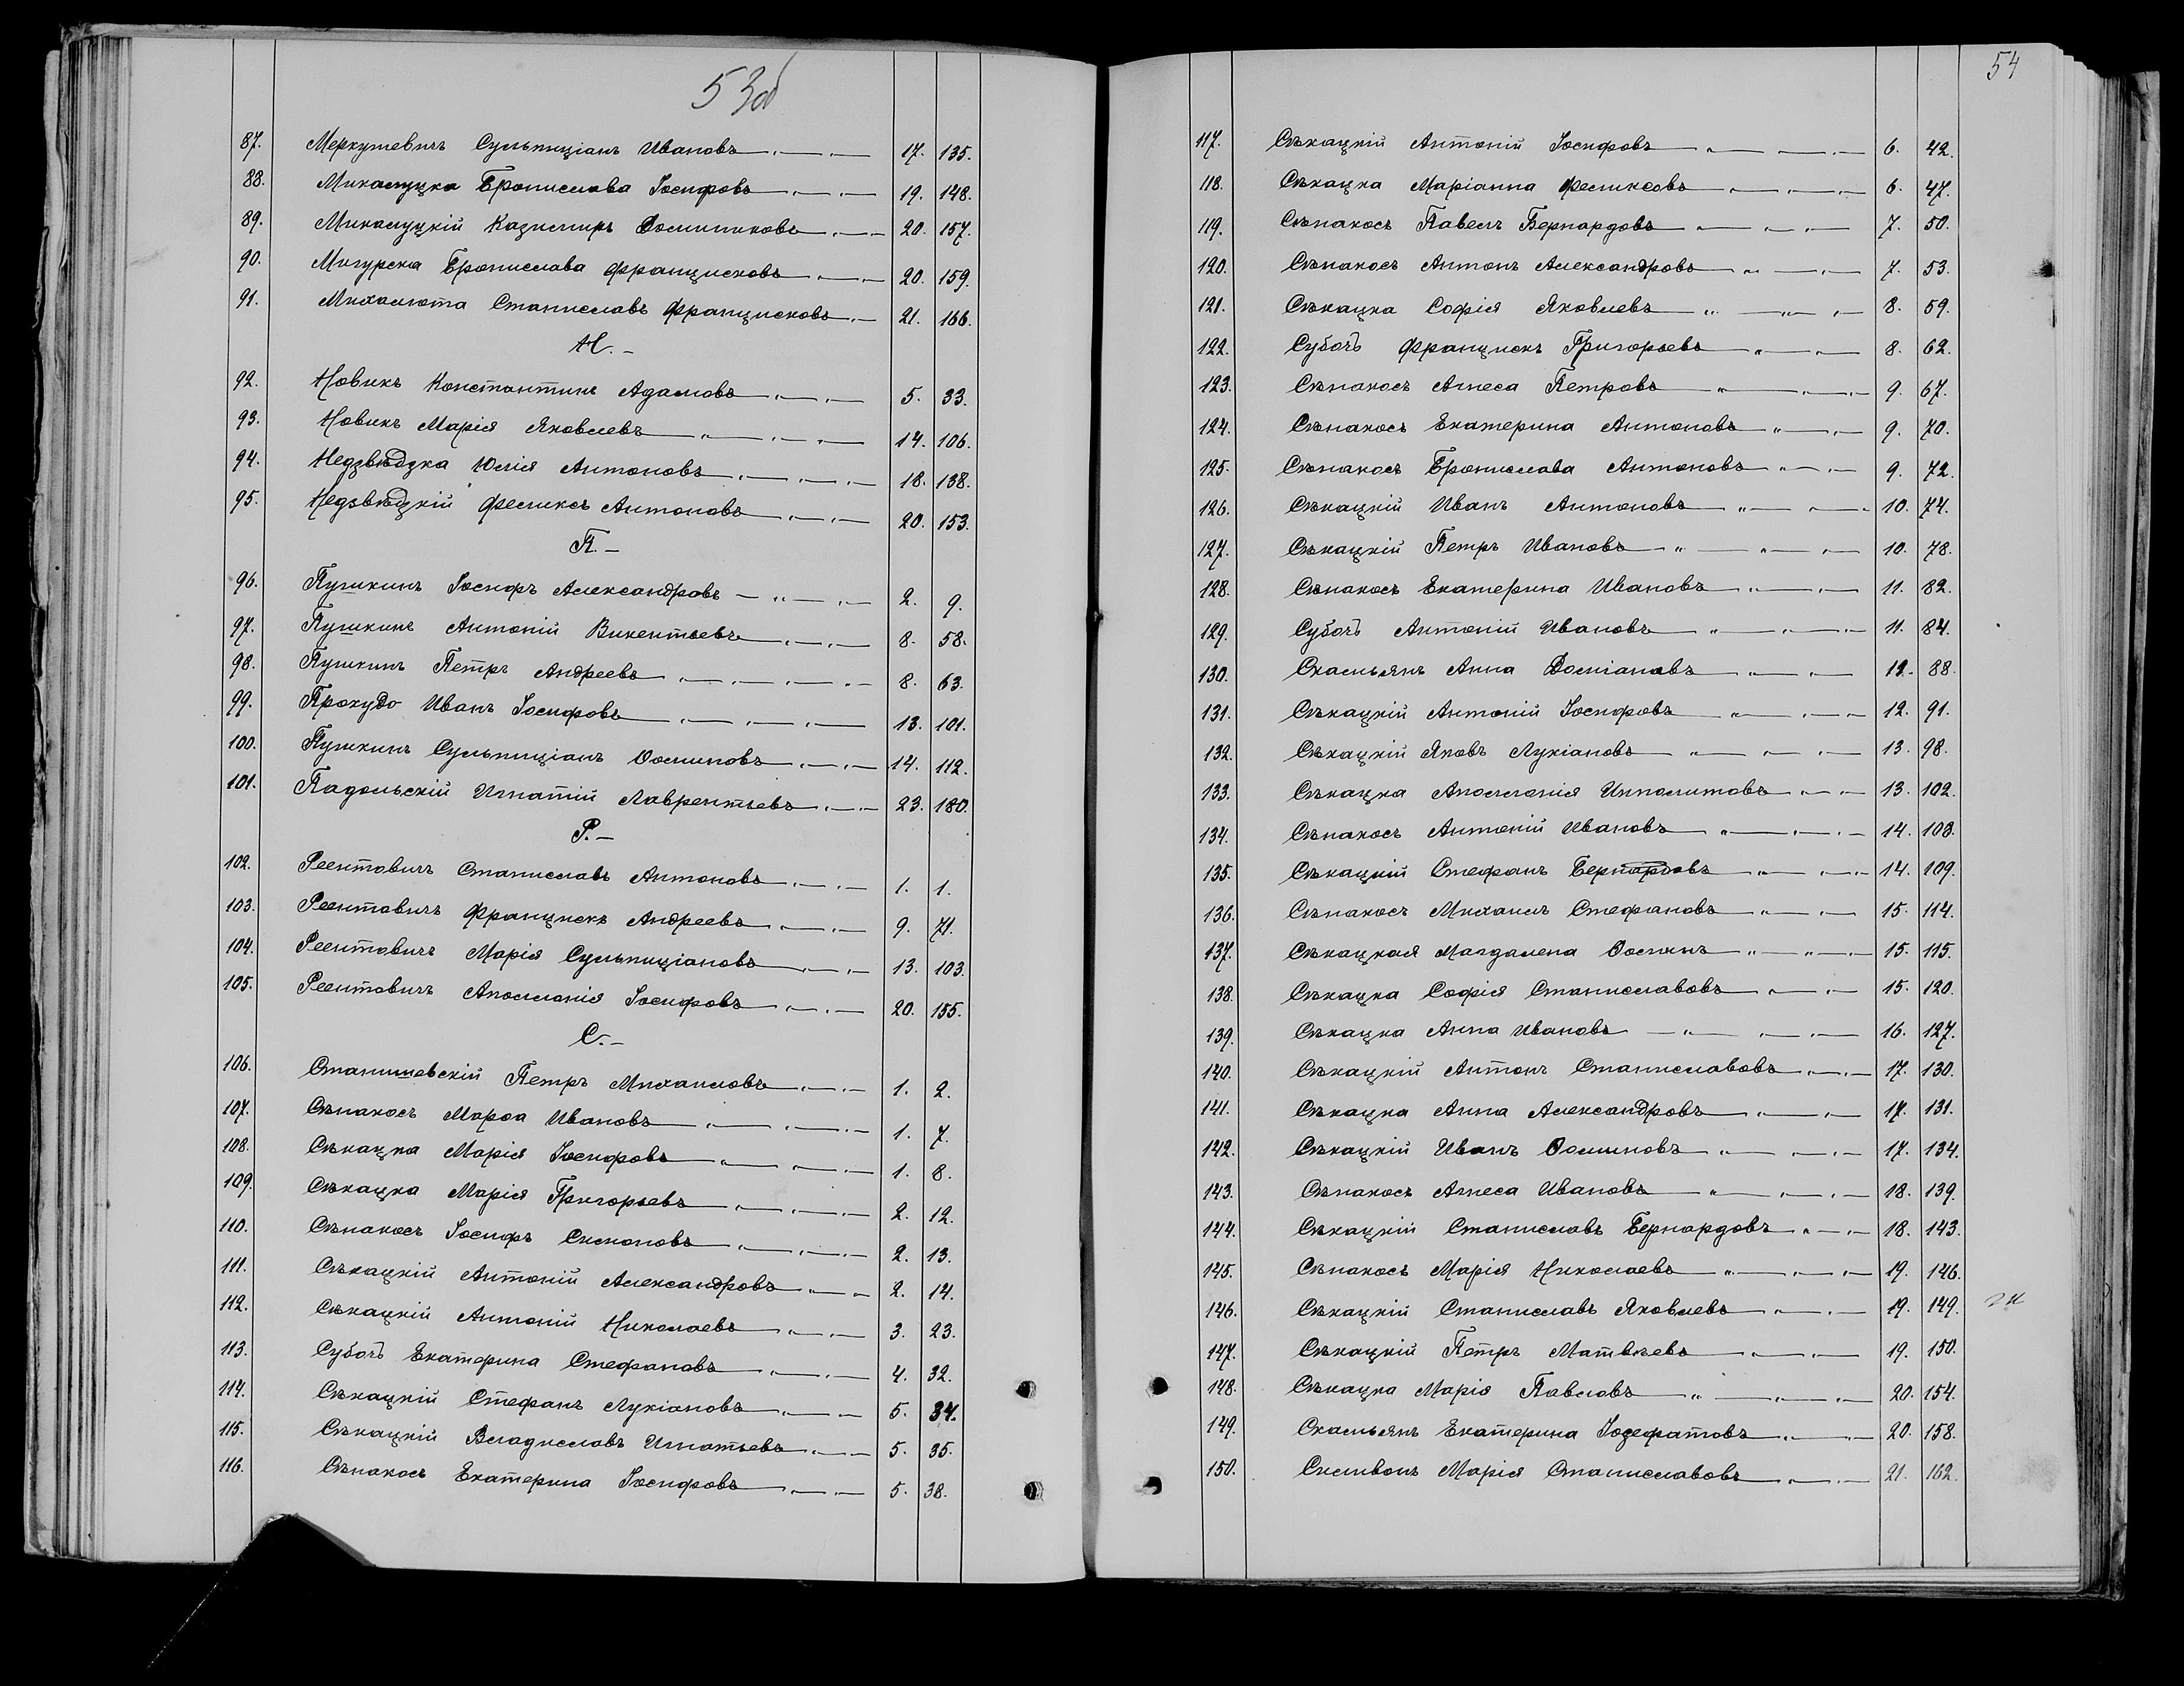 53об
87. Меркушевичъ Сульпиціанъ Ивановъ 17. 135.
88. Микалуцка Брониславa Іосифовъ 19. 148.
89. Микалуцкій Казимиръ Доминиковъ 20. 157.
90. Мигурска Бронислава Францисковъ 20. 159.
91. Михалюта Станиславъ Францисковъ 21. 166.
Н.
92. Новикъ Константинъ Адамовъ 5. 33.
93. Новикъ Марія Яковлевъ 14. 106.
94. Недзвѣдзка Юлія Антоновъ 18. 138.
95. Недзвѣдзкій Феликсъ Антоновъ 20. 153.
П.
96. Пушкинъ Іосифъ Александровъ 2. 9.
97. Пушкинъ Антоній Викентьевъ 8. 58.
98. Пушкинъ Петръ Андреевъ 8. 63.
99. Прокудо Иванъ Іосифовъ 13. 101.
100. Пушкинъ Сульпиціанъ Осиповъ 14. 112.
101. Падольскій Игнатій Лаврентьевъ 23. 180.
Р.
102. Реентовичъ Станиславъ Антоновъ 1. 1.
103. Реентовичъ Францискъ Андреевъ 9. 71.
104. Реентовичъ Марія Сульпиціановъ 13. 103.
105. Реентовичъ Аполлонія Іосифовъ 20. 155.
С.
106. Станишевскій Петръ Михаиловъ 1. 2.
107. Сѣнакосъ Марѳа Ивановъ 1. 7.
108. Сѣкацка Марія Іосифовъ 1. 8.
109. Сѣкацка Марія Григорьевъ 2. 12.
110. Сѣнакосъ Іосифъ Симоновъ 2. 13.
111. Сѣкацкій Антоній Александровъ 2. 14.
112. Сѣкацкій Антоній Николаевъ 3. 23.
113. Суботъ Екатерина Стефановъ 4. 32.
114. Сѣкацкій Стефанъ Лукіановъ 5. 34.
115. Сѣкацкій Владиславъ Игнатьевъ 5. 35.
116. Сѣнакосъ Екатерина Іосифовъ 5. 38.
54
117. Сѣкацкій Антоній Іосифовъ 6. 42.
118. Сѣкацка Маріанна Феликсовъ 6. 47.
119. Сѣнакосъ Павелъ Бернардовъ 7. 50.
120. Сѣнакосъ Антонъ Александровъ 7. 53.
121. Сѣкацка Софія Яковлевъ 8. 59.
122. Суботъ Францискъ Григорьевъ 8. 62.
123. Сѣнакосъ Агнеса Петровъ 9. 67.
124. Сѣнакосъ Екатерина Антоновъ 9. 70.
125. Сѣнакосъ Бронислава Антоновъ 9. 72.
126. Сѣкацкій Иванъ Антоновъ 10. 74.
127. Сѣкацкій Петръ Ивановъ 10. 78.
128. Сѣнакосъ Екатерина Ивановъ 11. 82.
129. Суботъ Антоній Ивановъ 11. 84.
130. Скамьянъ Анна Доміановъ 12. 88.
131. Сѣкацкій Антоній Іосифовъ 12. 91.
132. Сѣкацкій Яковъ Лукіановъ 13. 98.
133. Сѣкацка Аполлонія Ипполитовъ 13. 102.
134. Сѣнакосъ Антоній Ивановъ 14. 108.
135. Сѣкацкій Стефанъ Бернардовъ 14. 109.
136. Сѣнакосъ Михаилъ Стефановъ 15. 114.
137. Сѣкацкая Магдалена Осипъ 15. 115.
138. Сѣкацка Софія Станиславовъ 15. 120.
139. Сѣкацка Анна Ивановъ 16. 127.
140. Сѣкацкій Антонъ Станиславовъ 17. 130.
141. Сѣкацка Анна Александровъ 17. 131.
142. Сѣкацкій Иванъ Осиповъ 17. 134.
143. Сѣнакосъ Агнеса Ивановъ 18. 139.
144. Сѣкацкій Станиславъ Бернардовъ 18. 143.
145. Сѣнакосъ Марія Николаевъ 19. 146.
146. Сѣкацкій Станиславъ Яковлевъ 19. 149.
147. Сѣкацкій Петръ Матвѣевъ 19. 150.
148. Сѣкацка Марія Павловъ 20. 154.
149. Скамьянъ Екатерина Іозефатовъ 20. 158.
150. Силивонъ Марія Станиславовъ 21. 162.